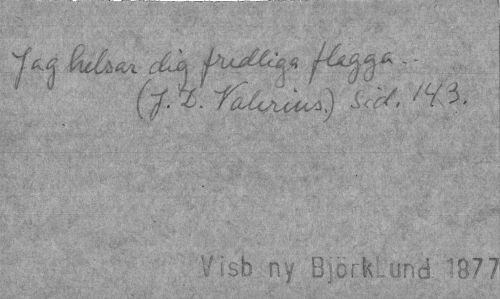 Jag helsar dig fredliga flagga..
(J. D. Valerius.) Sid. 143.
Visb ny BjörkLund 1877